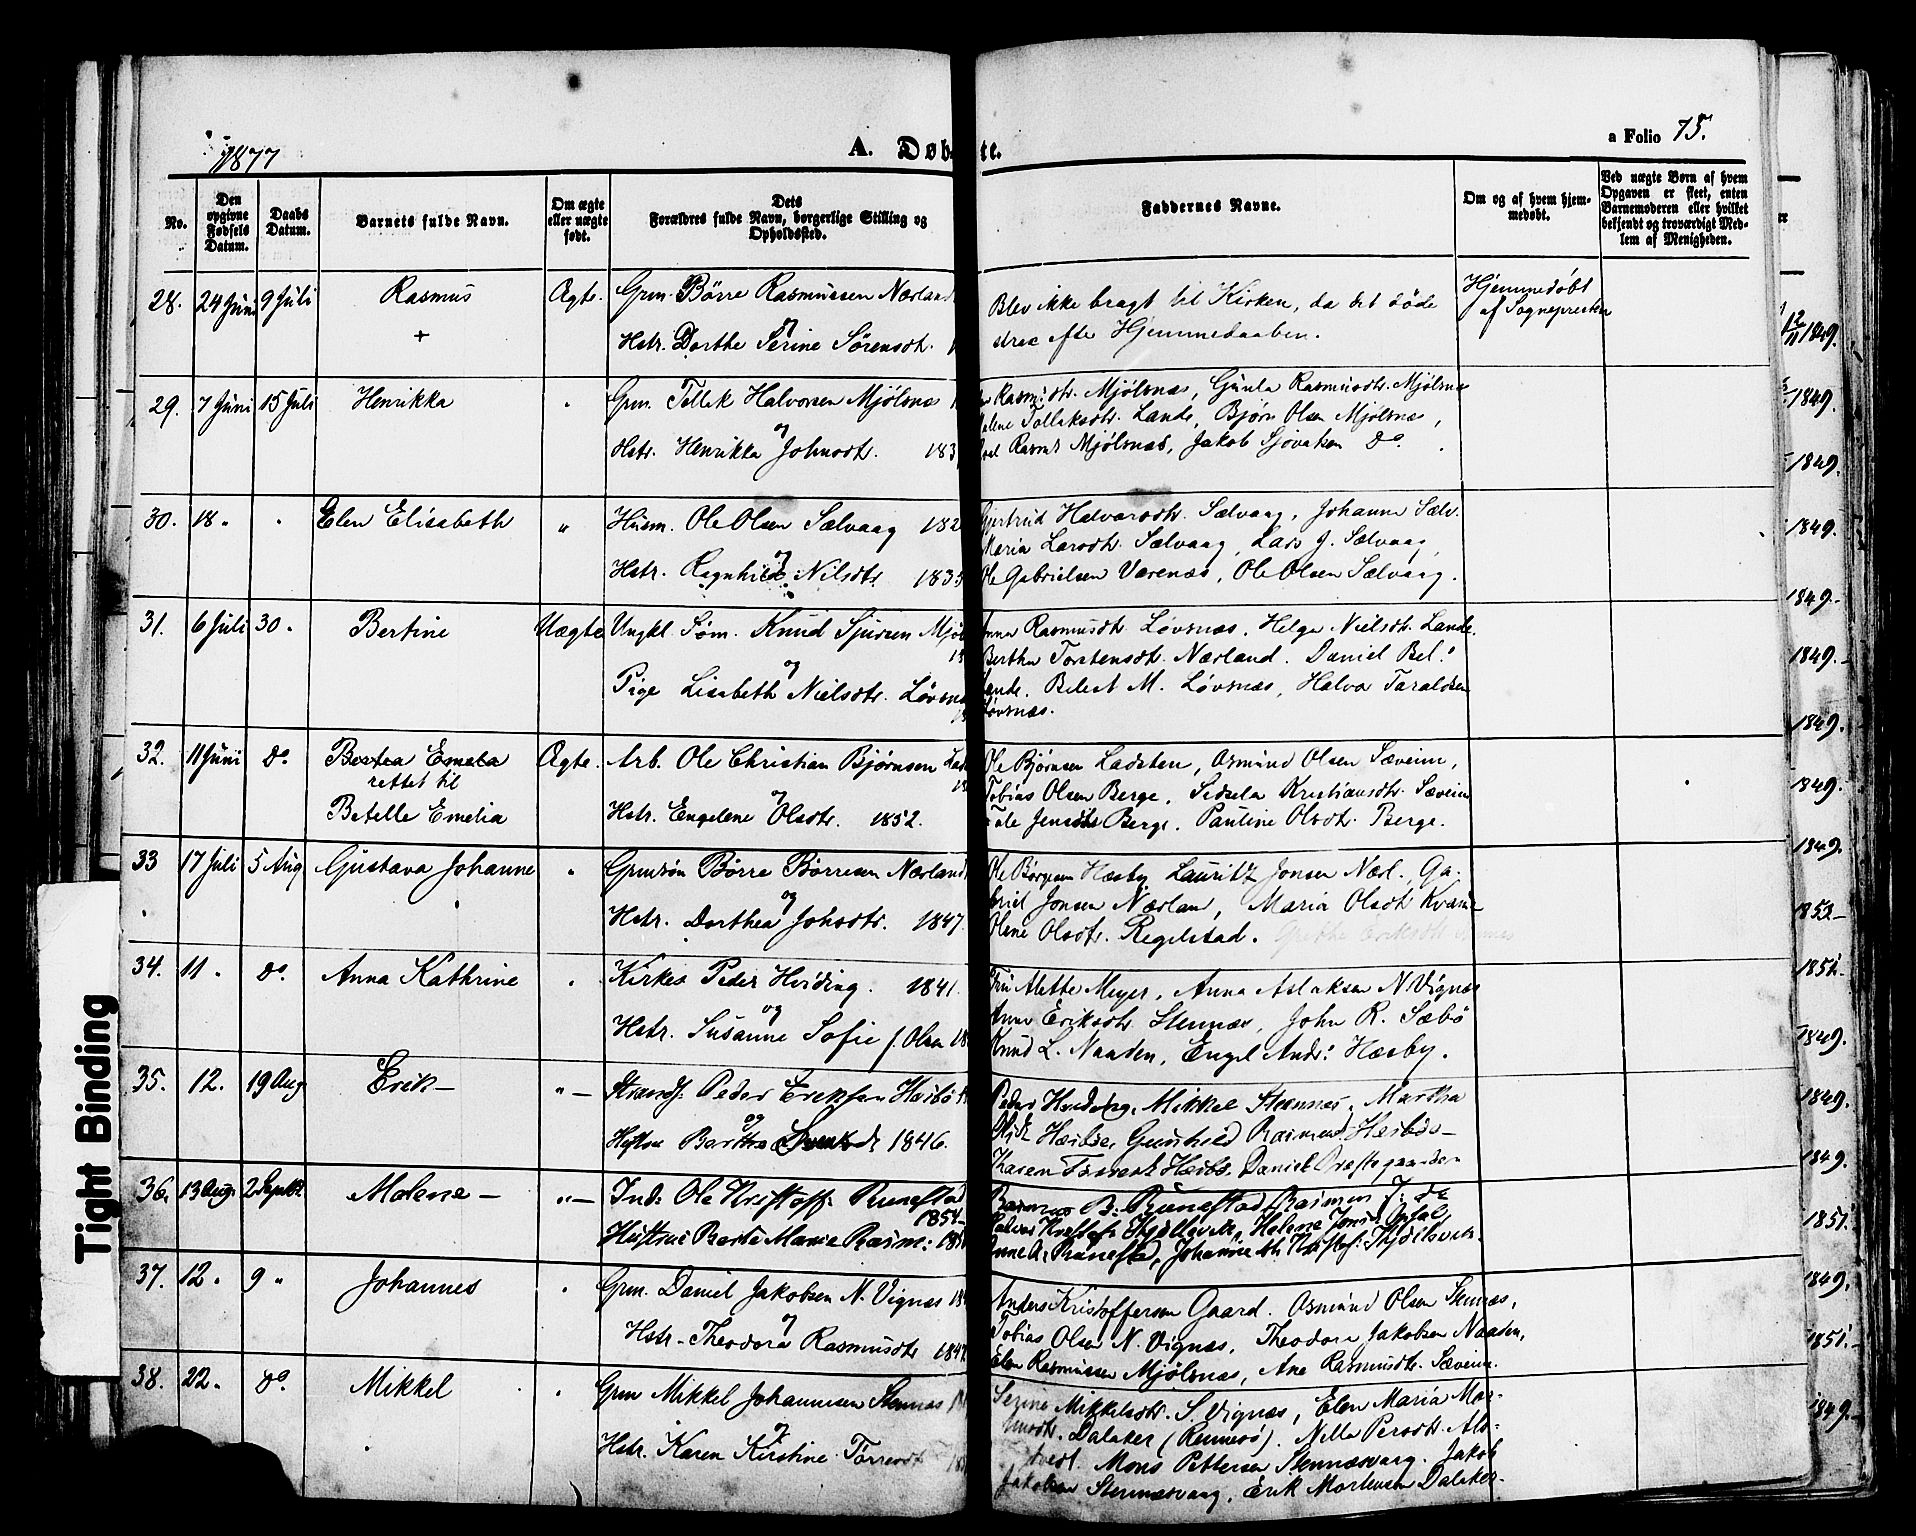 1877
A. Døbte.
a Folio 75.
No.
Den opgivne Fødsels Datum.
Daabs Datum.
Barnets fulde Navn.
Om ægte eller uægte født.
Dets Forældres fulde Navn, borgerlige Stilling og Opholdssted.
Faddernes Navne.
Om og af hvem hjemmedøbt.
Ved uægte Børn af hvem Opgaven er skeet, enten Barnemoderen eller hvilket bekjendt og troværdigt Medlem af Menigheden.
28. 24 Juni 9 Juli Rasmus Ægte. Grm. Børre Rasmussen Nærland
+ og
Hstr. Dorthe Serine Sørensdt.
Blev ikke bragt til Kirken, da det døde
strax efte Hjemmedaaben.
Hjemmedøbt
af Sognepresten
29. 7 Juni 15 Juli Henrikka " Grm. Tollak Halvorsen Mjølsnæs
og
Hstr. Henrikka Johnsdt. 183
Rasmsdtr. Mjølsnæs, Gunla Rasmusdtr. Mjølsnæ
Malene Tollaksdtr. Lande, Bjørn Olsen Mjølsnæs,
Rasms Mjølsnæs, Jakob Sjovatsen do.
30. 18 " " Elen Elisabeth " Husm. Ole Olsen Sælvaag 182
og
Hstr. Ragnhild Nilsdtr. 1835
Gjertrud Halvorsdtr. Sælvaag, Johanna Sælv.
Maria Larsdtr. Sælvaag, Lars J. Sælvaag,
Ole Gabrielsen Varenæs, Ole Olsen Sælvaag.
31. 6 Juli 30. Bertine Uægte Ungkl. Søm. Knud Sjursen Mjøl
og
Pige Lisabeth Nielsdtr. Løvsnæ
Anna Rasmusdt. Løvsnæs. Helga Nielsdt. Lande.
Bertha Torstensdt. Nærland. Daniel Bel:
Lande. Belest M. Løvsnæs, Halvor Taraldsen
Løvsnæs.
32. 11 Juni do. Bertea Emela Ægte. Arb. Ole Christian Bjørnsen Lad
rettet til og
Betelle Emelia Hstr. Engelene Olsdtr. 1852.
Ole Bjørnsen Ladsten, Osmund Olsen Sæveim,
Tobias Olsen Berge, Sidsela Kristiansdtr. Sæveim
Jensdtr Berge. Pauline Olsdt. Berge.
33 17 Juli 5 Aug Gustava Johanne " Grmsøn Børre Børresen Nærland
og
Hstr. Dorthea Johsdtr. 1847.
Ole Børgesen Hæsby Lauritz Jonsen Nærl., Ga-
briel Jonsen Nærlan, Maria Olsdt. Kvæsne
Olene Olsdtr. Regelstad. Grethe Eriksdt.
34. 11 " do. Anna Kathrine " Kirkes Peder Hviding. 1841.
og
Hstr. Susanne Sofie f. Olsen 18
Fru Alette Meyer, Anna Aslaksen N. Vignæs
Anna Eriksdtr. Stennæs, John R. Sæbø
Knud L. Naaden, Engel Andr: Hæsby.
35. 12. 19 Aug Erik— "— Strands: Peder Eriksen Hæsbø
og
Hustru Bartha 1846.
Peder Hviding, Mikkel Stennæs, Martha
Hæsbø, Gunhild Rasmusd. Hæsbø—
Karen Hæsbø. Daniel Præstegaarden
36. 13 Aug. 2 Septbr Malene— "— Ind: Ole Kristoff: Runestad
1854—
Hustru Berte Marie Rasm:
Rasmus B. Runestad, Rasmus J. do
Peder Kristof: Skjølvik, Helene
Anne A. Runestad, Johanne M. Kristof: Skjølsvik.
37. 12 " 9 " Johannes " Grm. Daniel Jakobsen N. Vignæs
og
Hstr. Theodora Rasmusdtr 1847
Anders Kristoffersen Gaard. Osmund Olsen Stennæs,
Tobias Olsen N. Vignæs, Theodora Jakobsen Naaden,
Elen Rasmussen Mjølsnæs, Ane Rasmusdtr. Sæveim.
38. 22. do. Mikkel " Grm Mikkel Johannesen Stennæs
og
Hstr. Karen Kirstine Tørresdt
Serine Mikkelsdtr. S Vignæs, Elen Maria Mar-
Dalaker (Rennesø). Nella Persdt. Als-
tvedt. Mons Pettersen Stennæsvaag. Jakob
Jakobsen Stennæsvaag, Erik Mortensen Dalaker.
12/11 1849.
1849.
1849.
1849.
1849.
1849.
1849.
1849.
1849.
1852
1851.
1849.
1849.
1849.
1851
1849.
1851.
1849.
Tight Binding